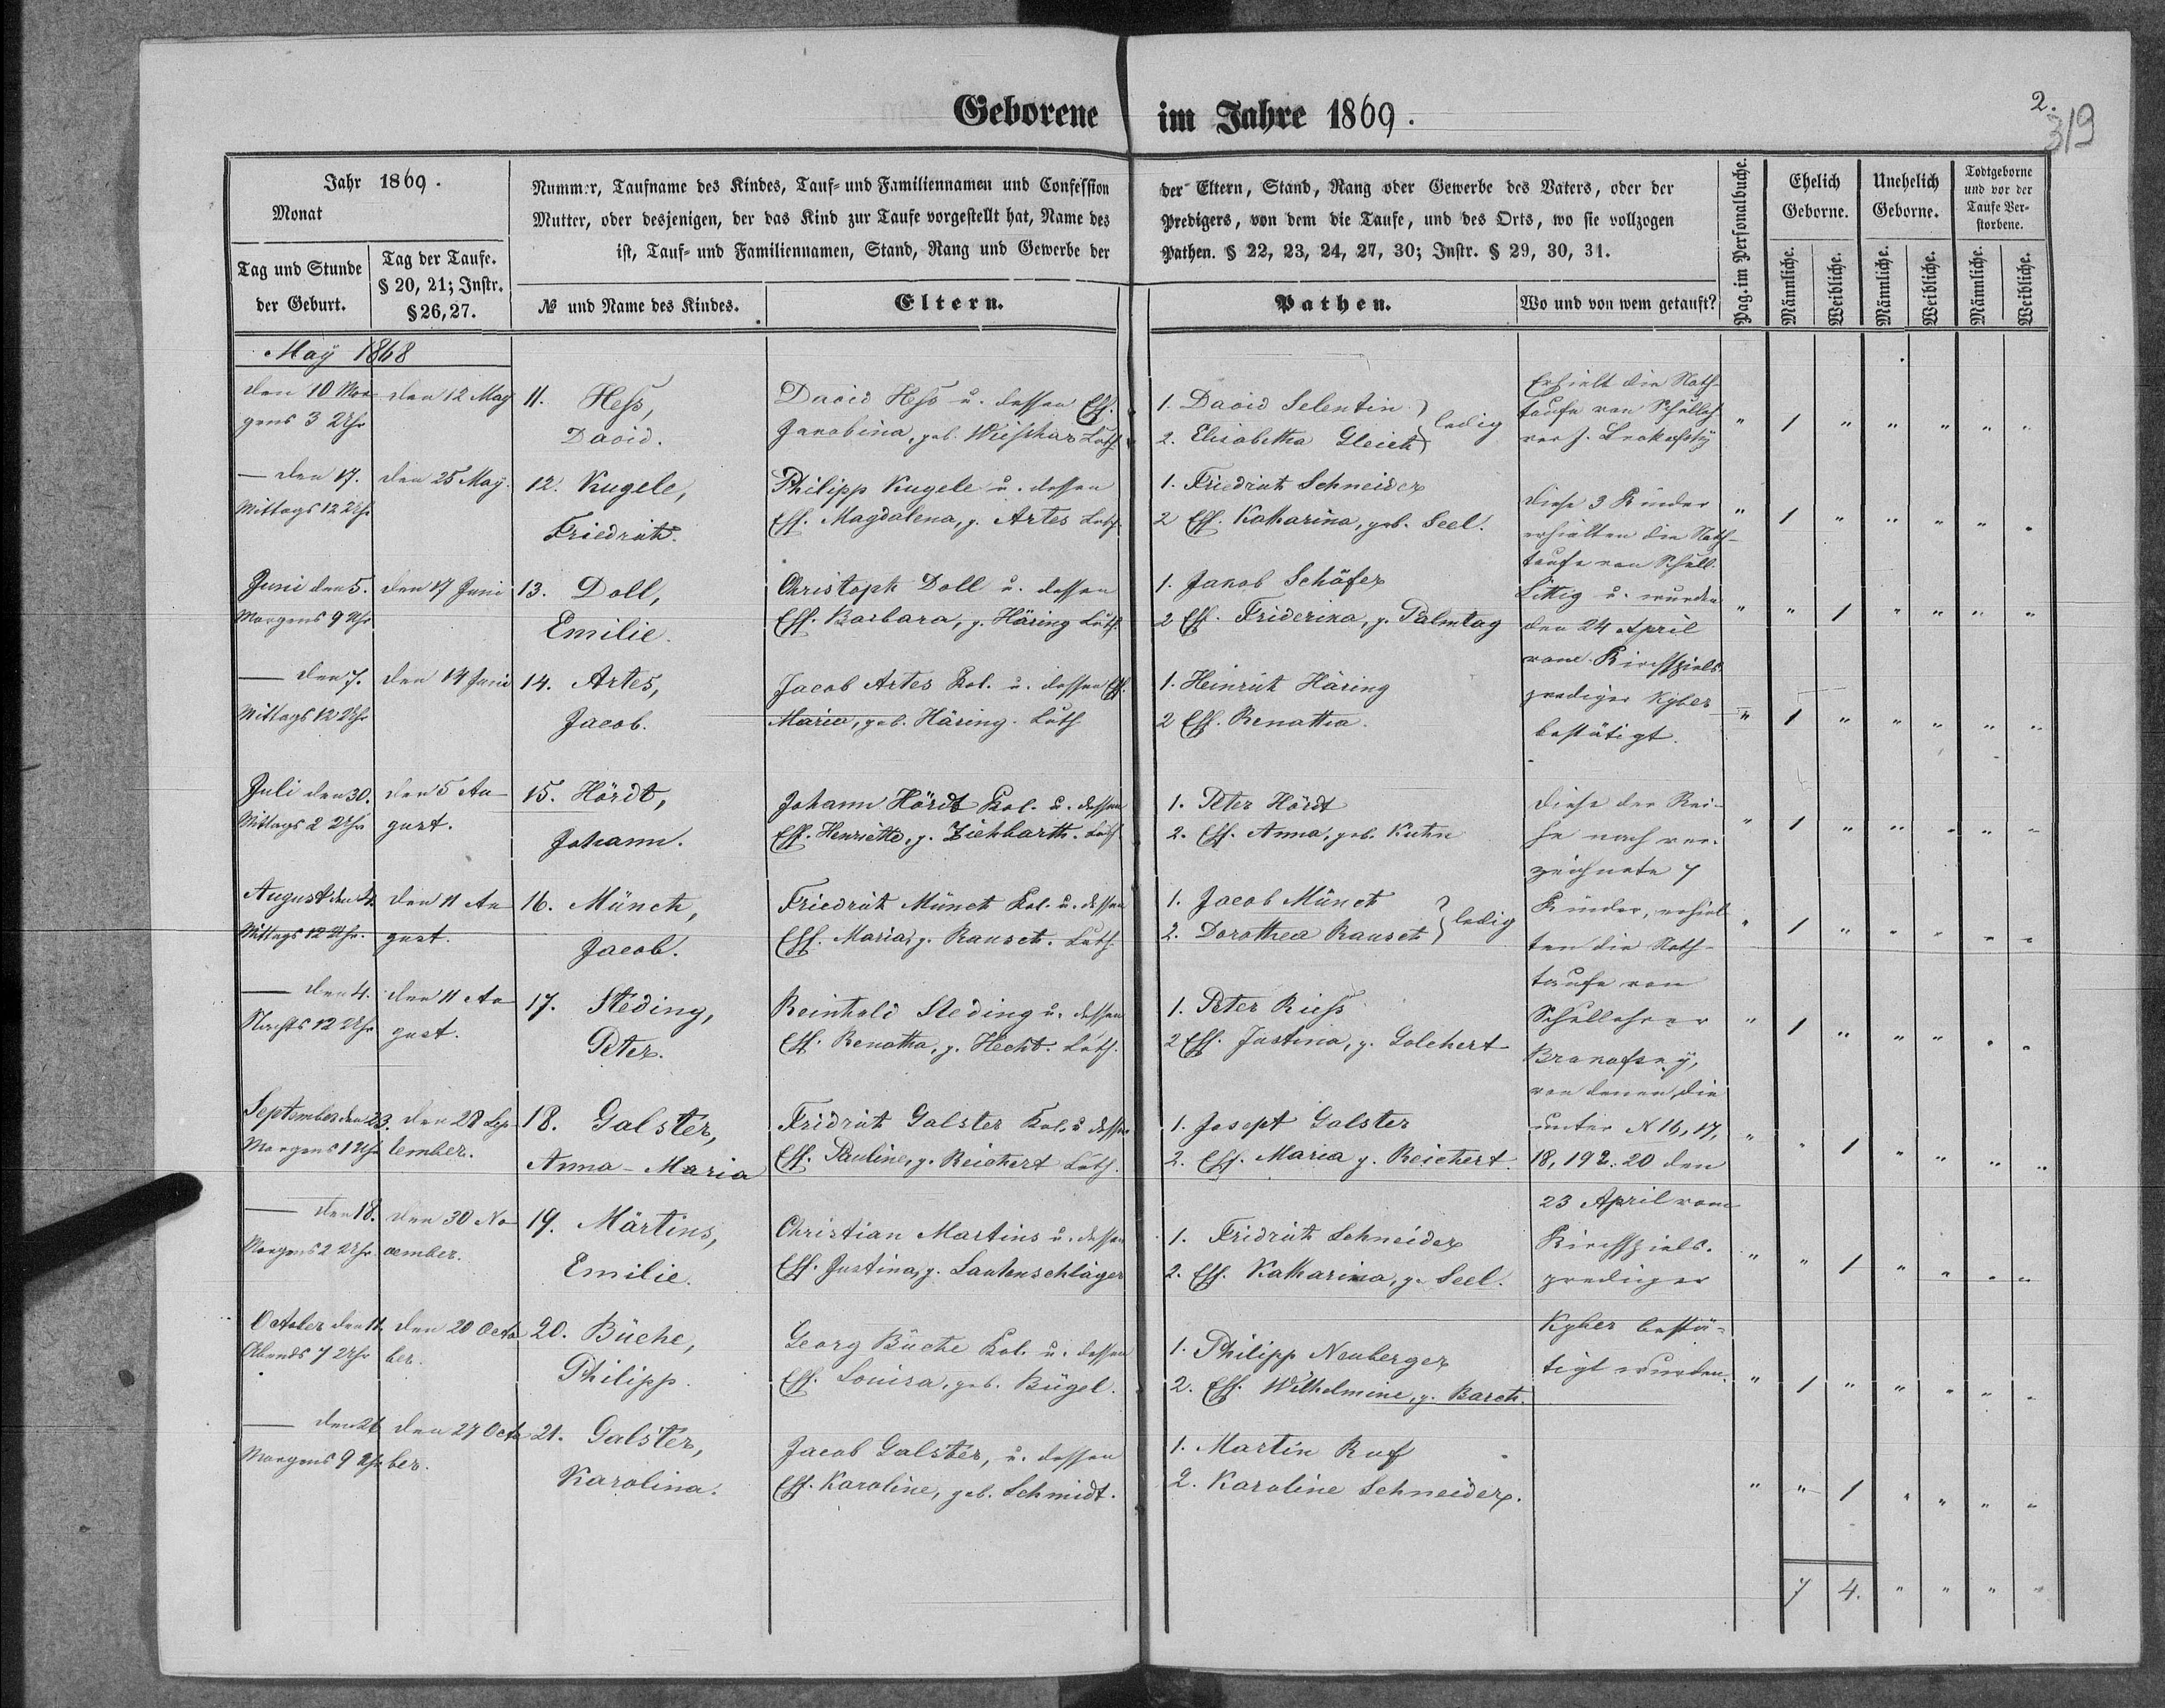 Geborene im Jahre 1869.
2.
319
Jahr 1869.
Monat
Tag und Stunde
der Geburt.
Tag der Taufe.
§ 20, 21; Instr.
§ 26, 27.
Nummer, Taufname des Kindes, Tauf- und Familiennamen und Confession
Mutter, oder desjenigen, der das Kind zur Taufe vorgestellt hat, Name des
ist, Tauf- und Familiennamen, Stand, Rang und Gewerbe der
№ und Name des Kindes.
Eltern.
der Eltern, Stand, Rang oder Gewerbe des Vaters, oder der
Predigers, von dem die Taufe, und des Orts, wo sie vollzogen
Pathen. § 22, 23, 24, 27, 30; Instr. § 29, 30, 31.
Pathen.
Wo und von wem getauft?
Pag. im Personalbuche.
Ehelich
Geborne.
Unehelich
Geborne.
Todtgeborne
und vor der
Taufe Ver-
storbene.
Männliche.
Weibliche.
Männliche.
Weibliche.
Männliche.
Weibliche.
May 1868
den 10 Mor-
gens 3 Uhr
den 12 May
11. Heß,
David.
David Heß u. dessen Ehf.
Jacobina, geb. Luth.
1. David Selentin
2. Elisabetha Gleich
ledig
Erhielt die Noth-
taufe von
" 1 " " " " "
— den 17.
Mittags 12 Uhr
den 25 May.
12. Kugele,
Friedrich.
Philipp Kugele u. dessen
Ehf. Magdalena, g. Artes Luth.
1. Friedrich Schneider
2 Ehf. Katharina, geb. Seel.
diese 3 Kinder
erhielten die Noth-
taufe von Schull.
Littig u. wurden
den 24 April
vom Kirchspiels-
prediger Kyber
bestätigt.
" 1 " " " " "
Juni den 5.
Morgens 9 Uhr
den 17 Juni
13. Doll,
Emilie.
Christoph Doll u. dessen
Ehf. Barbara, g. Häring Luth.
1. Jakob Schäfer
2 Ehf. Friderika, g. Palmtag
" " 1 " " " "
— den 7.
Mittags 12 Uhr
den 14 Juni
14. Artes,
Jacob.
Jacob Artes Kol. u. dessen Ehf.
Maria, geb. Häring. Luth
1. Heinrich Häring
2 Ehf. Renatha.
" 1 " " " " "
Juli den 30.
Mittags 2 Uhr
den 5 Au-
gust.
15. Hördt,
Johann.
Johann Hördt Kol. u. dessen
Ehf. Henriette, g. Ziehbarth. Luth
1. Peter Hördt
2. Ehf. Anna, geb. Kuhn
diese der Rei-
he nach ver-
zeichnete 7
Kinder, erhiel-
ten die Noth-
taufe von
Schullehrer
von denen die
unter N 16, 17,
18, 19 u. 20 den
23 April vom
Kirchspiels-
prediger
Kyber bestä-
tigt wurden.
" 1 " " " " "
August den 4.
Mittags 12 Uhr.
den 11 Au-
gust.
16. Münch,
Jacob.
Friedrich Münch Kol. u. dessen
Ehf. Maria, g. Rausch. Luth.
1. Jacob Münch
2. Dorothea Rausch
ledig
" 1 " " " " "
— den 4.
Nachts 12 Uhr
den 11 Au-
gust.
17. Steding,
Peter.
Reinhold Steding u. dessen
Ehf. Renatha, g. Hecht. Luth.
1. Peter Rieß
2 Ehf. Justina, g. Golchert
" 1 " " " " "
September den 23.
Morgens 1 Uhr
den 28 Sep-
tember.
18. Galster,
Anna-Maria
Fridrich Galster Kol. u. dessen
Ehf. Pauline, g. Reichert Luth.
1. Joseph Galster
2. Ehf. Maria g. Reichert.
" " 1 " " " "
— den 18.
Morgens 2 Uhr.
den 30 No-
vember.
19. Märtins,
Emilie.
Christian Martins u. dessen
Ehf. Justina, g. Lautenschläger
1. Fridrich Schneider
2. Ehf. Katharina, g. Seel.
" " 1 " " " "
October den 11.
Abends 7 Uhr
den 20 Octo-
ber.
20. Büche,
Philipp.
Georg Büche Kol. u. dessen
Ehf. Louisa, geb. Bügel.
1. Philipp Neuberger
2. Ehf. Wilhelmine, g. Barch.
" 1 " " " " "
— den 26
Morgens 9 Uhr
den 27 Octo-
ber.
21. Galster,
Karolina.
Jacob Galster, u. dessen
Ehf. Karoline, geb. Schmidt.
1. Martin Ruf
2. Karoline Schneider.
" " 1 " " " "
7 4. " " " "